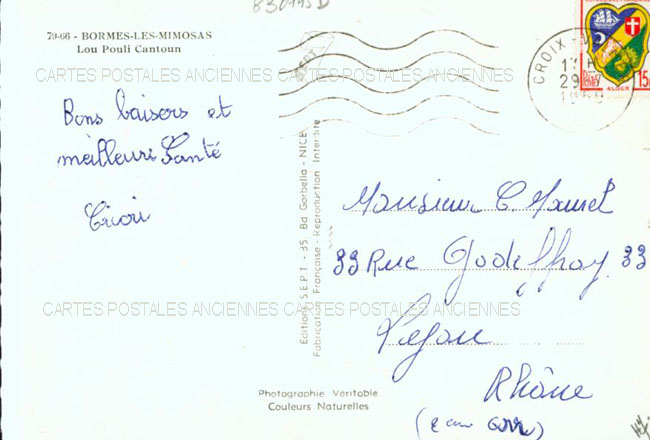 830195D
79-66 - BORMES-LES-MIMOSAS
Lou Pouli Cantoun
CARTES POSTALES ANCIENNES CARTES POSTALES ANCIENNES
Bons baisers et
meilleure Santé
CROIX
29
ALGER
15
Editions S.E.P.T. - 35, Bd Gorbella - NICE
Fabrication Française - Reproduction Interdite
Monsieur C.
33 Rue Godeffroy 33
CARTES POSTALES ANCIENNES CARTES POSTALES ANCIENNES
Rhône
Photographie Veritable
Couleurs Naturelles